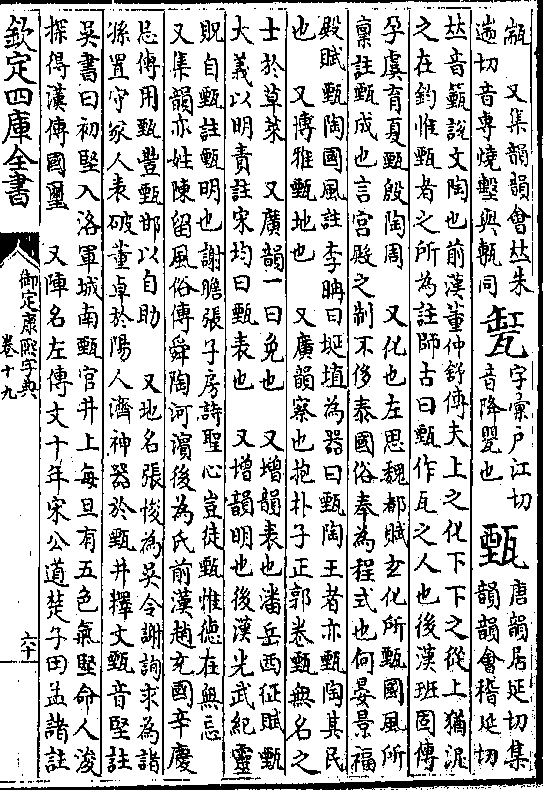 甋　又集韻韻會𠀤朱
遄切音專燒墼與甎同
字彙戶江切
音降甖也
甄
唐韻居延切集
韻韻會稽延切
𠀤音籈說文陶也前漢董仲舒傳夫上之化下下之從上猶泥
之在鈞惟甄者之所為註師古曰甄作瓦之人也後漢班固傳
孕虞育夏甄殷陶周　又化也左思魏都賦玄化所甄國風所
稟註甄成也言宮殿之制不侈泰國俗奉為程式也何晏景福
殿賦甄陶國風註李曰埏埴為器曰甄陶王者亦甄陶其民
也　又博雅甄地也　又廣韻察也抱朴子正郭卷甄無名之
士於草萊　又廣韻一曰免也　又增韻表也潘岳西征賦甄
大義以明責註宋均曰甄表也　又增韻明也後漢光武紀靈
貺自甄註甄明也謝瞻張子房詩聖心豈徒甄惟德在無忘
又集韻亦姓陳留風俗傳舜陶河濱後為氏前漢趙充國辛慶
忌傳用甄豐甄邯以自助　又地名張悛為吳令謝詢求為諸
孫置守冢人表破董卓於陽人濟神器於甄井擇文甄音堅註
吳書曰初堅入洛軍城南甄官井上每旦有五色氣堅命人浚
探得漢傳國璽　又陣名左傳文十年宋公道楚子田孟諸註
欽定四庫全書
御定康熙字典
卷十九
六十